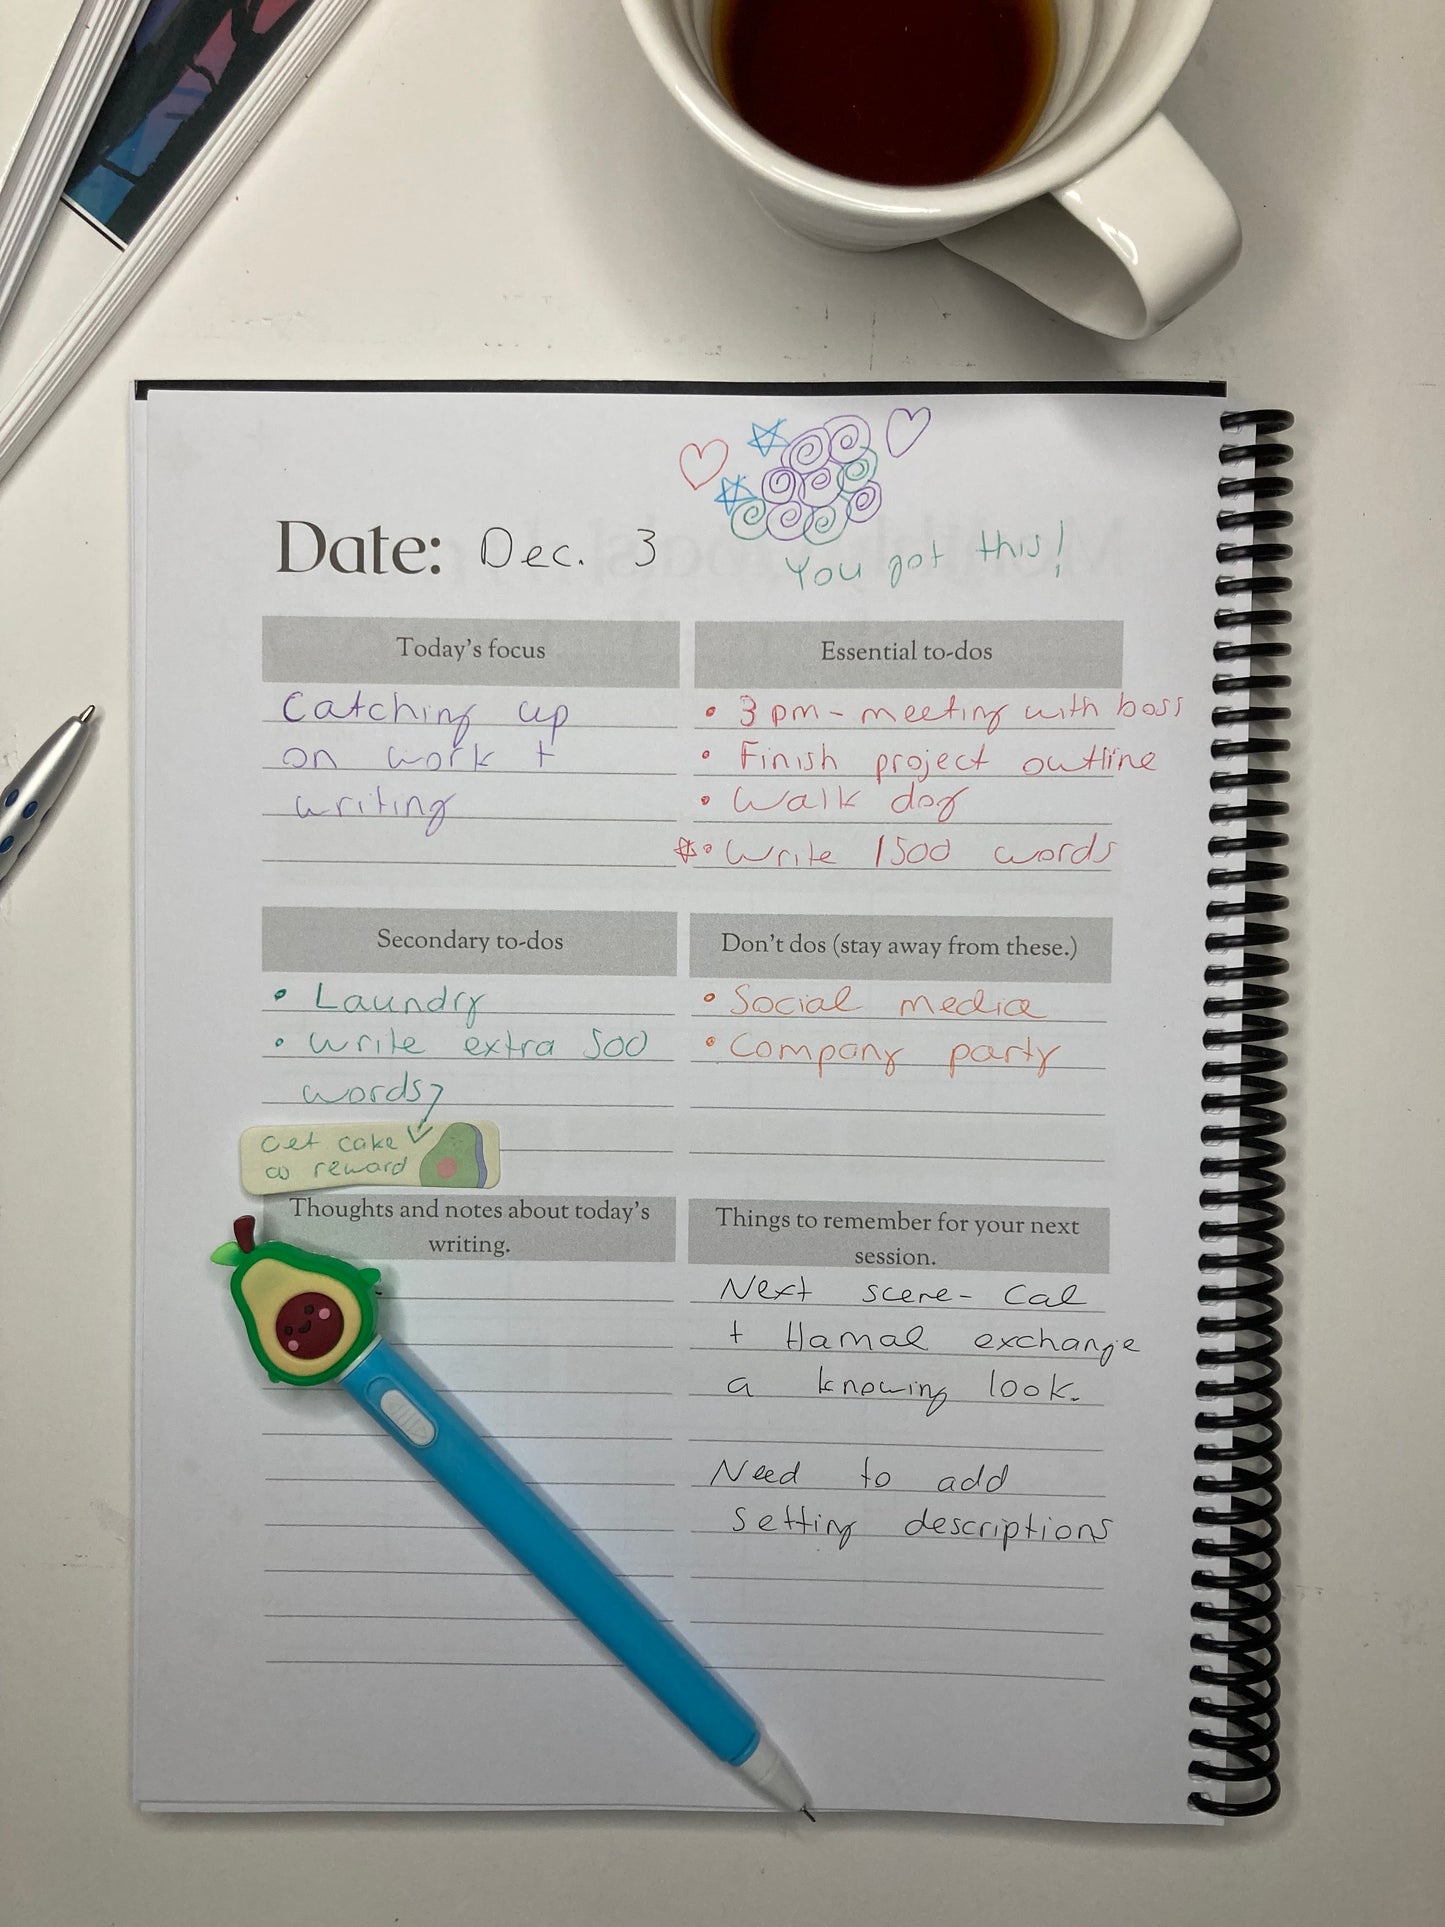 Date: Dec. 3
You got this!
Today's focus
Catching up
on work +
writing
Essential to-dos
• 3pm - meeting with boss
• Finish project outline
• Walk dog
☆• Write 1500 words
Secondary to-dos
• Laundry
• Write extra 500
words?
Get cake
as reward
Don't dos (stay away from these.)
• Social media
• Company party
Thoughts and notes about today's
writing.
Things to remember for your next
session.
Next scene - Cal
+ Hamal exchange
a knowing look.
Need to add
setting descriptions